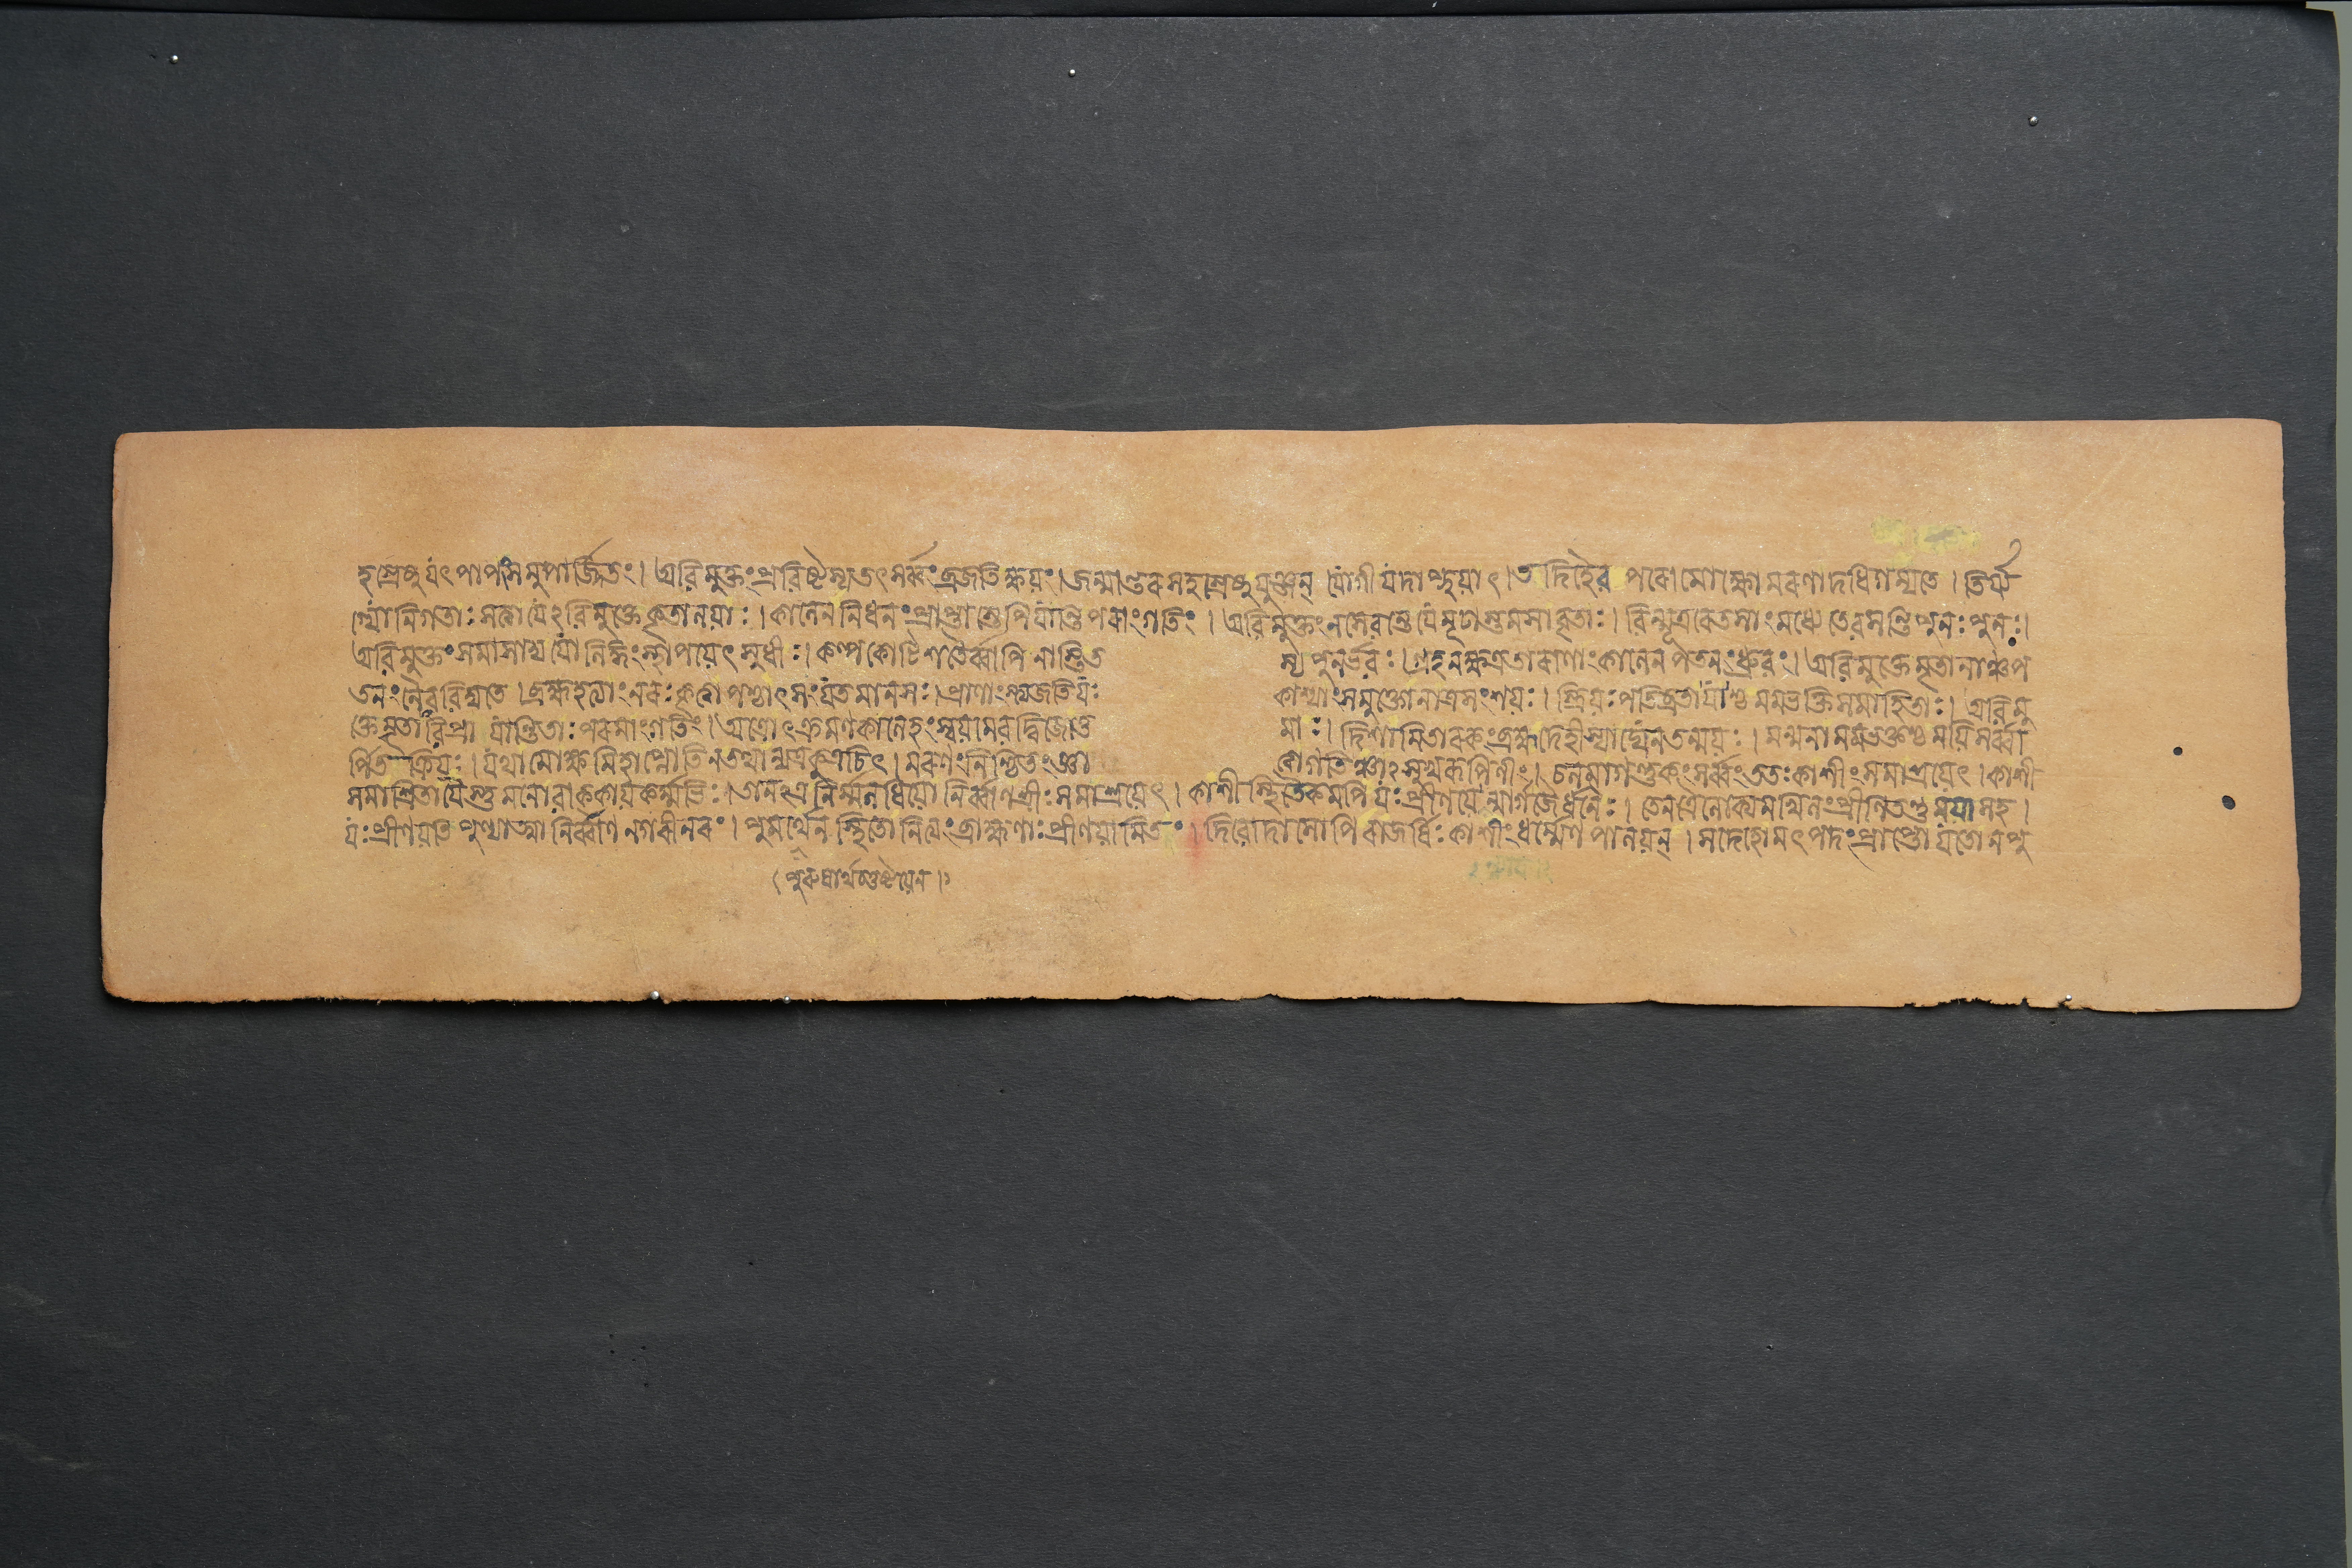 হস্রেষু যৎ পাপং সমুপার্জ্জিতং । অবিমুক্তং প্রবিষ্টস্য তৎ সর্ব্বং ব্রজতি ক্ষয়ং । জন্মান্তরসহস্রেষু যুঞ্জন্ যোগী যদাপ্নুয়াৎ । তদিহৈব পরো মোক্ষো মরণাদধিগম্যতে । তির্য্য
গ্যোনিগতাঃ সত্ত্বা যেঽবিমুক্তে কৃতালয়াঃ । কালেন নিধনং প্রাপ্তাস্তেপি যান্তি পরাং গতিং । অবিমুক্তং ন সেবন্তে যে মূঢাস্তমসাবৃতাঃ । বিন্মূত্ররেতসাং মধ্যে তে বসন্তি পুনঃ পুনঃ ।
অবিমুক্তং সমাসাদ্য যো লিঙ্গং স্থাপয়েৎ সুধীঃ । কল্পকোটিশতৈর্ব্বাপি নাস্তি ত স্য পুনর্ভবঃ । গ্রহনক্ষত্রতারাণাং কালেন পতনং ধ্রুবং । অবিমুক্তে মৃতানাঞ্চ প
তনং নৈব বিদ্যতে । ব্রহ্মহত্যাং নরঃ কৃত্বা পশ্চাৎ সংযতমানসঃ । প্রাণাংস্ত্যজতি যঃ কাশ্যাং স মুক্তো নাত্র সংশয়ঃ । স্ত্রিয়ঃ পতিব্রতা যাশ্চ মম ভক্তিসমাহিতাঃ । অবিমু
ক্তে মৃতা বিপ্রা যান্তি তাঃ পরমাং গতিং । অত্রোৎক্রমণকালেহং স্বয়মেব দ্বিজোত্ত মাঃ । দিশামি তারকং ব্রহ্ম দেহী স্যাদ্যেন তন্ময়ঃ । মন্মনা মম ভক্তশ্চ ময়ি সর্ব্বা
র্পিতক্রিয়ঃ । যথা মোক্ষমিহাপ্নোতি ন তথান্যত্র কুত্রচিৎ । মরণং নিশ্চিতং জ্ঞা ত্বা গতিঞ্চাঽসুখরূপিণীং । চলমাগন্তুকং সর্ব্বং ততঃ কাশীং সমাশ্রয়েৎ । কাশী
সমাশ্রিতা যৈস্তু মনোবাক্কায়কর্ম্মভিঃ । তানত্র নির্ম্মলধিয়ো নির্ব্বাণশ্রীঃ সমাশ্রয়েৎ । কাশীস্থিতৈকমপি যঃ প্রীণয়েন্ন্যায়র্গজৈর্ধনৈঃ । তেন ত্রৈলোক্যমখিলং প্রীণিতন্তু ময়া সহ ।
যঃ প্রীণয়তি পুণ্যাত্মা নির্ব্বাণনগরীনরং । পুমর্থেন স্থিতো নিত্যং ব্রাহ্মণাঃ প্রীণয়ামি তং । দিবোদাসোপি রাজর্ষিঃ কাশীং ধর্ম্মেণ পালয়ন্ । সদেহো মৎপদং প্রাপ্তো যতো ন পু
(পুরুষার্থচতুষ্টয়েন।)